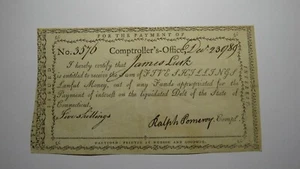 FOR THE PAYMENT OF
No. 3576 Comptroller's-Office, Dec. 23 1789
I hereby certify that James Lusk
is entitled to receive the Sum of FIVE SHILLINGS
Lawful Money, out of any Funds appropriated for the
Payment of interest on the liquidated Debt of the State of
Connecticut.
Five Shillings
Ralph Pomeroy, Compt.
HARTFORD: PRINTED BY HUDSON AND GOODWIN.